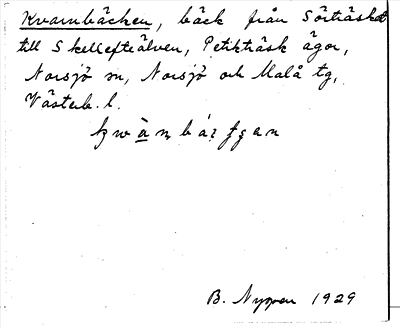 Kvarnbäcken, bäck från Sörträsket
till Skellefteälven, Petikträsk ägor,
Norsjö sn, Norsjö och Malå tg,
Västerb. l.
B. Nygren 1929